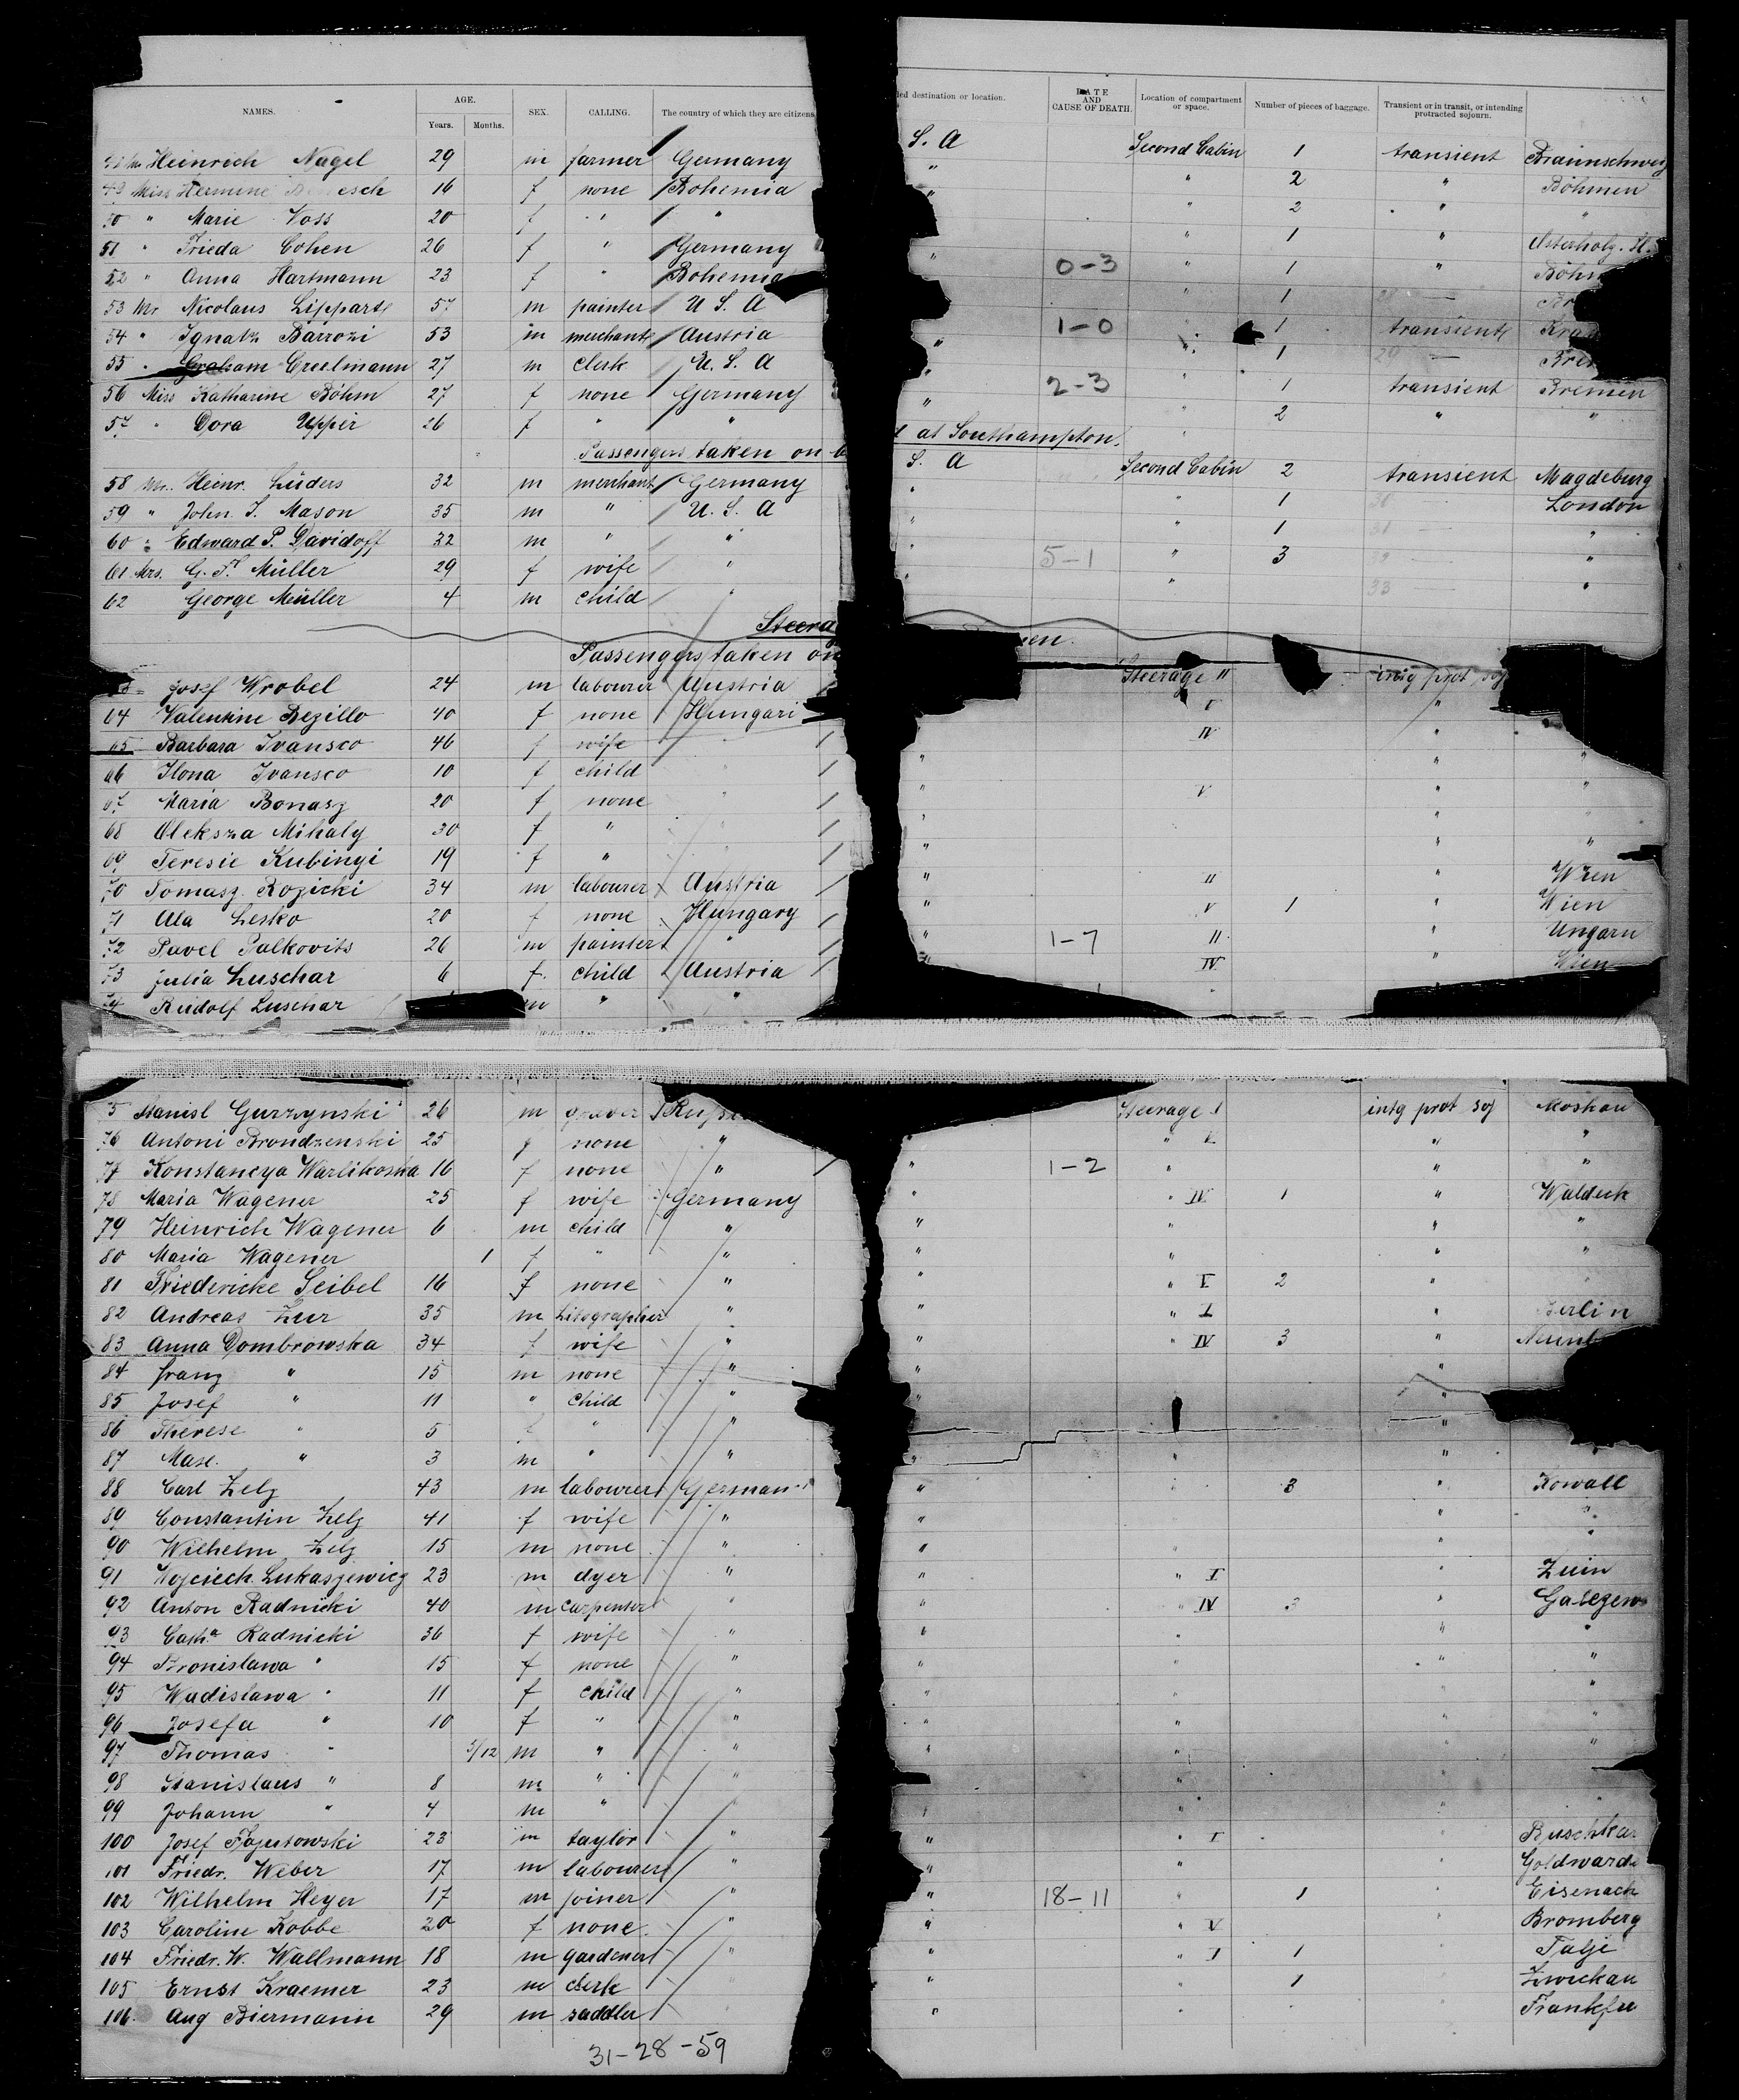 NAMES. AGE. SEX. CALLING. The country of which they are citizens. ded destination or location. DATE AND CAUSE OF DEATH. Location of compartment or space. Number of pieces of baggage. Transient or in transit, or intending protracted sojourn.
Years. Months.
Heinrich Nagel 29 m farmer Germany S. A Second Cabin 1 transient Braunschweig
Miss Hermine 16 f none Bohemia " " 2 " Böhmen
50 " Marie Voss 20 f " " " " 2 " "
51 " Frieda Cohen 26 f " Germany " 1 " Osterholz.
52 " Anna Hartmann 23 f " Bohemia " 0-3 " 1 "
53 Mr Nicolaus Lippart 57 m painter U S. A " 1
54 " Ignatz Barrozi 53 m merchant Austria 1-0 " 1 transient
55 " Graham Creelmann 27 m clerk U. S. A " " 1
56 Miss Katharine Böhm 27 f none Germany " 2-3 " 1 transient Bremen
57 " Dora Upper 26 f " " " " 2 " "
Passengers taken on at Southampton.
58 Mr. Heinr. Lüders 32 m merchant Germany S. A Second Cabin 2 transient Magdeburg
59 " John. J. Mason 35 m " U. S. A " " 1 30 London
60 " Edward P. Davidoff 32 m " " " " 1 31 "
61 Mrs. G. F. Müller 29 f wife " " 5-1 " 3 "
62 George Müller 4 m child " " " 33 "
Steera
Passengers taken on men.
Josef Wrobel 24 m labourer Austria Steerage II intg prot soj
64 Valentine Rezillo 40 f none Hungari V "
65 Barbara Ivansco 46 f wife IV "
66 Ilona Ivansco 10 f child " " " "
67 Maria Bonasz 20 f none " " V " "
68 Oleksza Mihaly 30 f " " " "
69 Teresie Kubinyi 19 f " " " " "
70 Tomasz Rozicki 34 m labourer Austria " II " Wien
71 Ala Lesko 20 f none Hungary " V 1 " Wien
72 Pavel Palkovits 26 m painter " " 1-7 II " Ungarn
73 Julia Luschar 6 f child Austria " IV " Wien
74 Rudolf Luschar m " "
5 Stanisl Gurzynski 26 m Steerage I intg prot soj Moskau
76 Antoni Brondzenski 25 f none " " " V " "
77 Konstancya Warlikoska 16 f none " " 1-2 " " "
78 Maria Wagener 25 f wife Germany " " IV 1 " Waldeck
79 Heinrich Wagener 6 m child " " " " "
80 Maria Wagener 1 f " " " " " "
81 Friedericke Seibel 16 f none " " " V 2 " "
82 Andreas Zur 35 m Litographer " " " I " Berlin
83 Anna Dombrowska 34 f wife " " " IV 3 "
84 Franz " 15 m none " " "
85 Josef " 11 " child " " "
86 Therese " 5 f " " "
87 Max. " 3 m " " " " " "
88 Carl Zelz 43 m labourer German " " 3 " Kowall
89 Constantin Zelz 41 f wife " " " "
90 Wilhelm Zelz 15 m none " " " " "
91 Wojciech. Lukaszewicz 23 m dyer " " " I " Zuin
92 Anton Radnicki 40 m carpenter " " " IV 3 "
93 Cath. Radnicki 36 f wife " " " " "
94 Bronislawa " 15 f none " " " " "
95 Wadislawa " 11 f child " " " " "
96 Josefa " 10 f " " " " " "
97 Thomas " 3/12 m " " " " " "
98 Stanislaus " 8 m " " " "
99 Johann " 4 m " " " " "
100 Josef Fajutowski 23 m taylor " " " I " Ruschkar
101 Friedr. Weber 17 m labourer " " " " Goldwarde
102 Wilhelm Heyer 17 m joiner " " 18-11 " 1 " Eisenach
103 Caroline Kobbe 20 f none " " " V " Bromberg
104 Friedr. W. Wallmann 18 m gardener " " " I 1 " Talje
105 Ernst Kraemer 23 m clerk " " " 1 " Zwickau
106. Aug Biermann 29 m saddler " " " " Frankfu
31-28-59